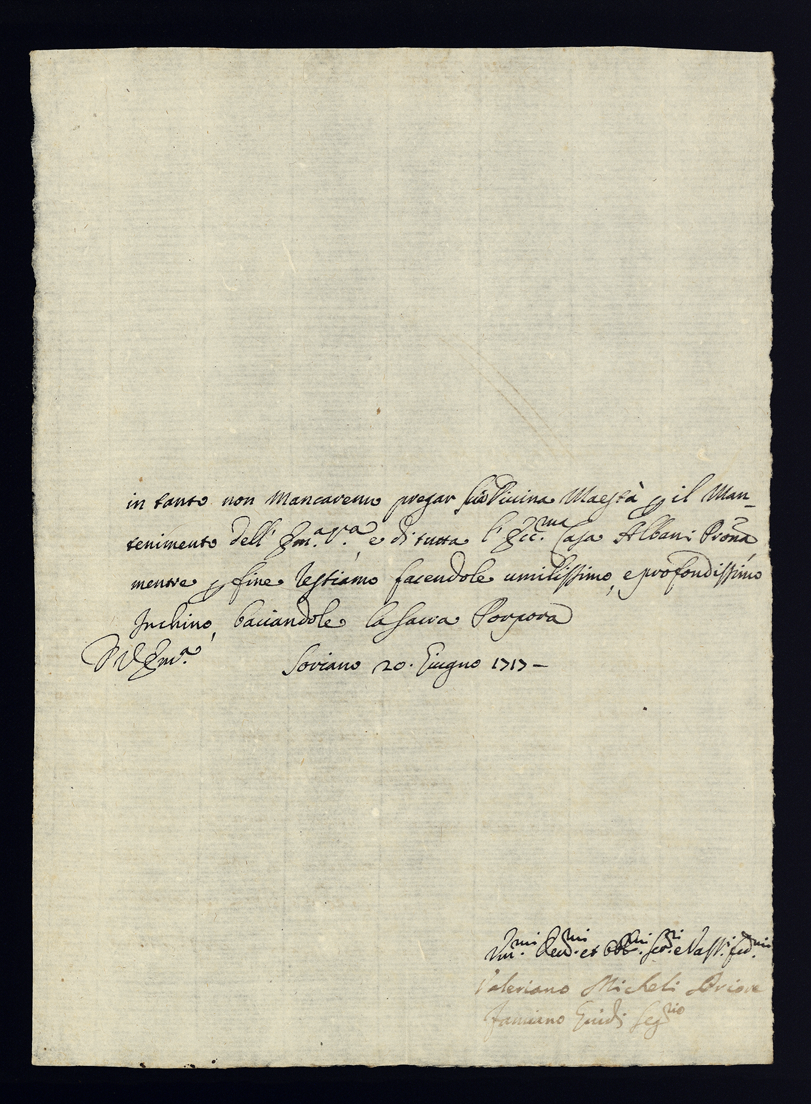 in tanto non Mancaremo pregar sua Divina Maestà p il Man-
tenimento dell' Em.ª V.ª e di tutta l' Ecc.ma Casa Albani
mentre p fine restiamo facendole umilissimo, e profondissimo
Inchino, bacciandole la sacra Porpora
D V Em.ª Soriano 20. Giugno 1717 –
Um.mi Dev.mi et Obb.mi Ser.ri e Vass.i fed.mi
Valeriano Micheli Priore
Famiano Guidi Seg.rio